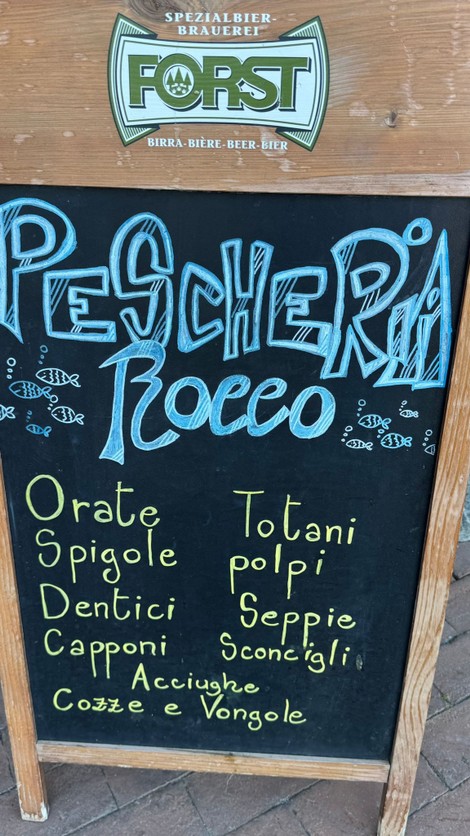 SPEZIALBIER-
BRAUEREI
FORST
BIRRA-BIÈRE-BEER-BIER
PESCHERIA
Rocco
Orate
Totani
Spigole
polpi
Dentici
Seppie
Capponi
Sconcigli
Acciughe
Cozze e Vongole